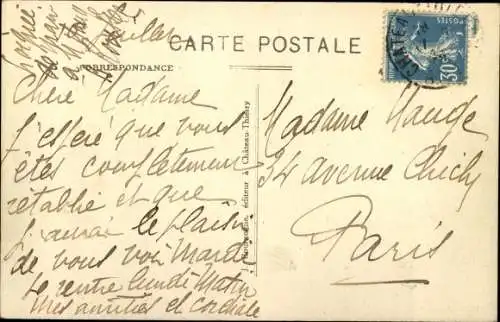 CARTE POSTALE
CORRESPONDANCE
Chère Madame
J'espère que vous
êtes complètement
rétablie et que
j'aurai le plaisir
de vous voir Mardi
Je rentre lundi Matin
Mes amitiés et cordiale
éditeur à Château-Thierry
POSTES
30
CHATEAU
Madame Mauge
34 Avenue Clichy
Paris